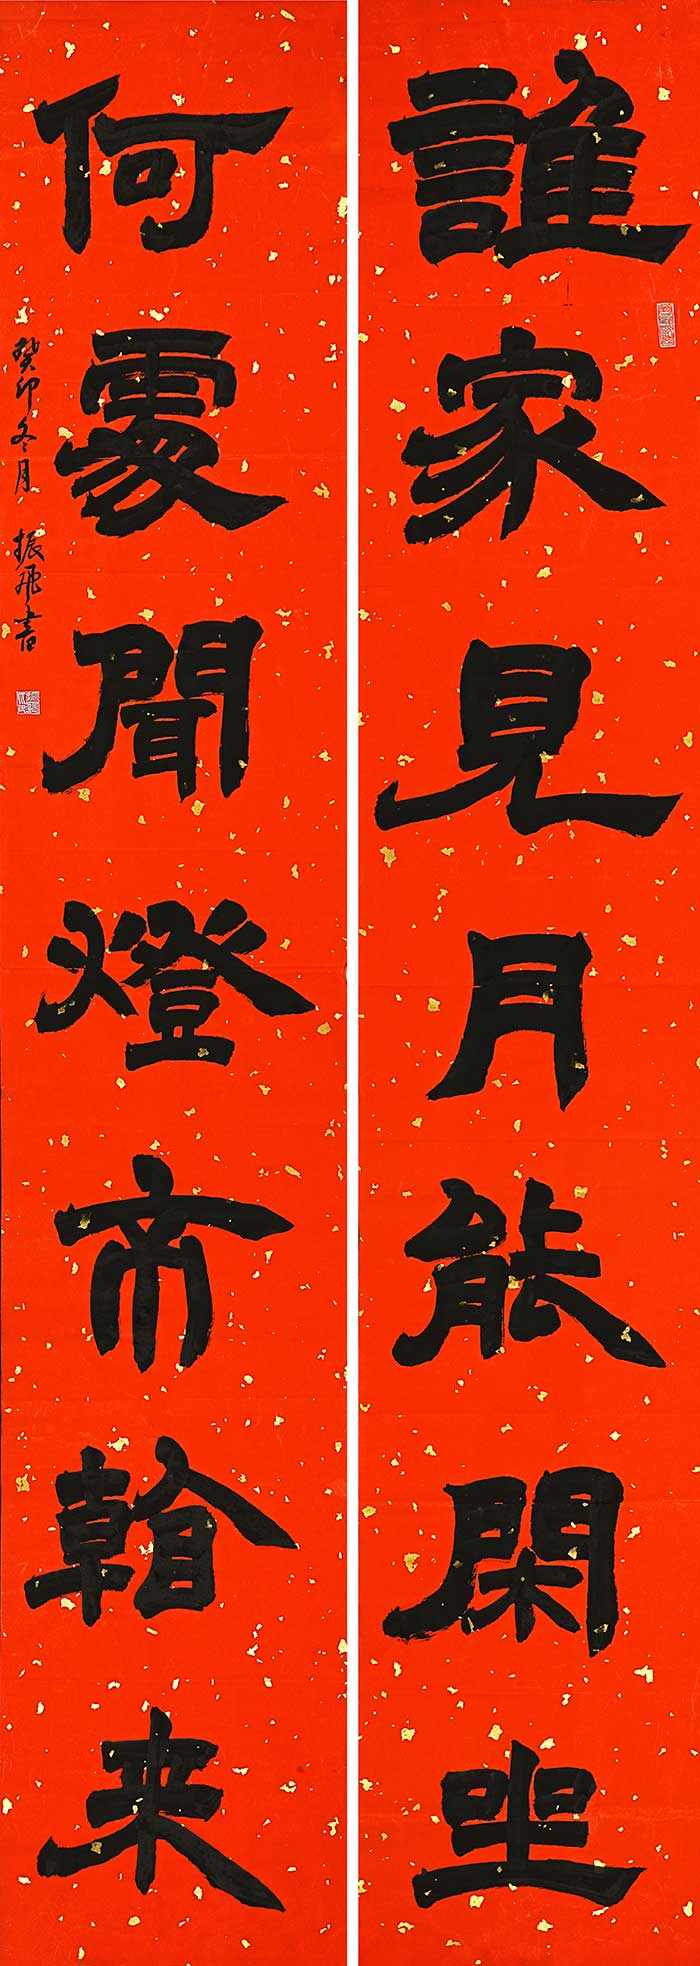 誰家見月能閑坐
何處聞燈不看来
癸卯冬月 振飛書